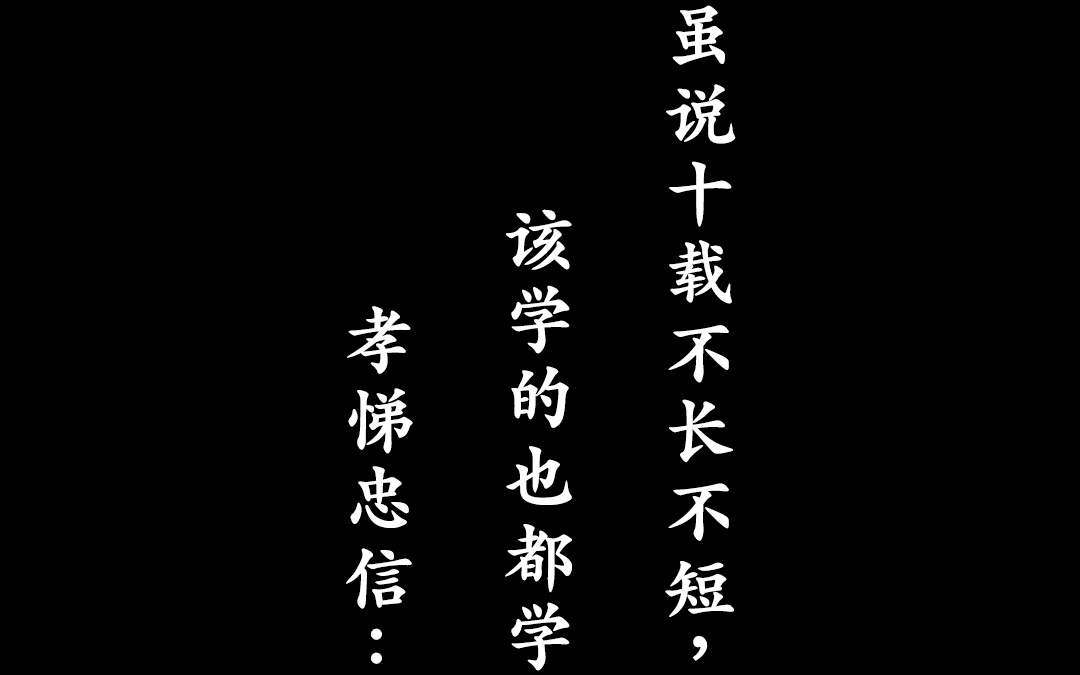 虽说十载不长不短，
该学的也都学
孝悌忠信：